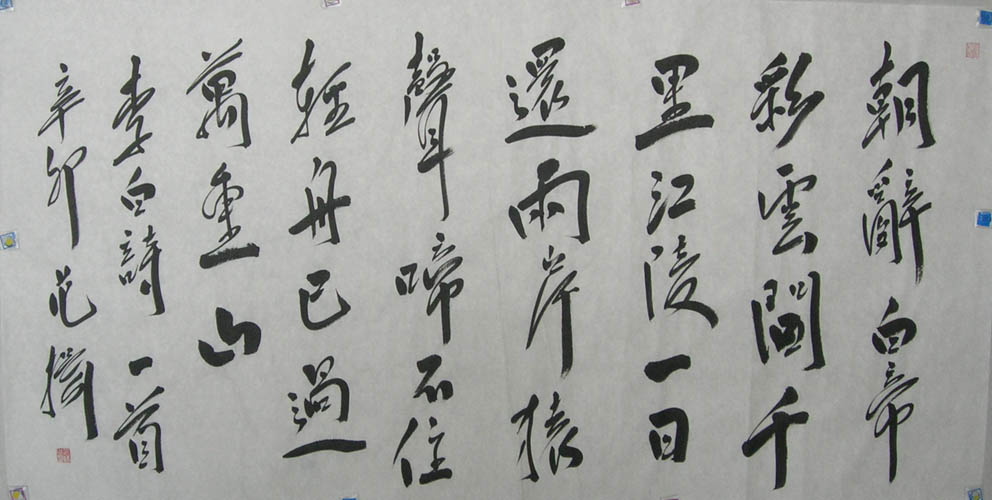 朝辭白帝
彩雲間千
里江陵一日
還兩岸猿
聲啼不住
輕舟已過
萬重山
李白詩一首
辛卯范